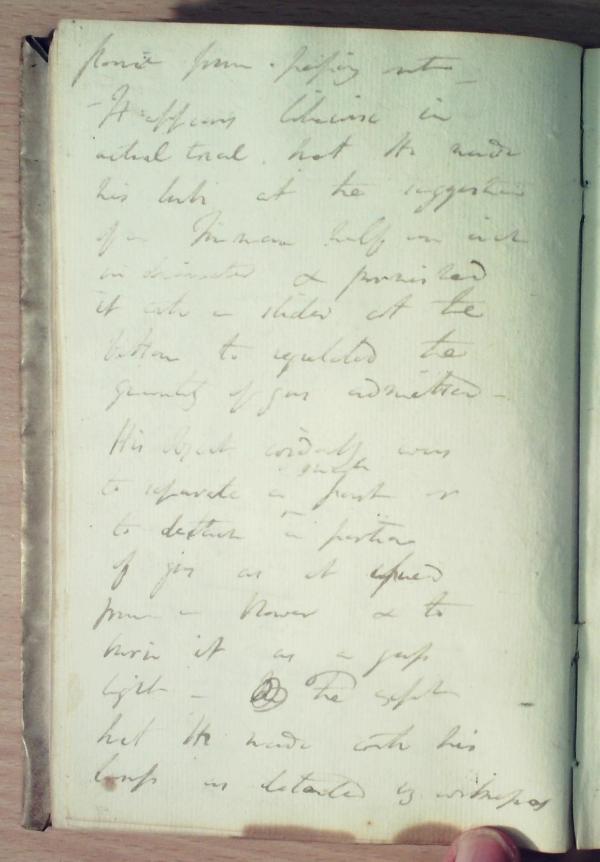 flame from passing into —
- It appears likewise in
actual trial that He made
his tube at the suggestion
of a Tinman half an inch
in diameter & furnished
it with a slider at the
bottom to regulate the
quantity of gas admitted -
His object was
small
to separate a part or
to detach a portion
of gas as it issued
from a blower & to
burn it as a gas
light - The
that He made with his
lamp as detailed by witnesses